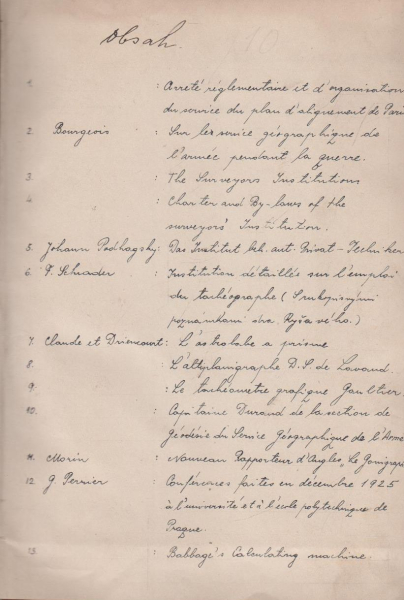 Obsah.
1. : Arreté réglementaire et d'organisation
du service du plan d'alignement de Paris
2. Bourgeois : Sur le service géographique de
l'armée pendant la guerre.
3. : The Surveyors Institutions
4. : Charter and By-laws of the
surveyors' Institution.
5. Johann Podhagsky: Das Institut beh. aut. Privat-Techniker
6. F. Schrader : Institution détaillés sur l'emploi
du tachéographe (S rukopisnými
poznámkami stav. Ryšavého.)
7. Claude et Driencourt: L'astrolabe a prisme
8. : L'altiplanigraphe D.S. de Lavaud.
9. : Le tachéomètre grafique Gaultier.
10. : Capitaine Durand de la section de
Géodésie du Service Géographique de l'Armé
11. Morin : Nouveau Rapporteur d'Angles "Le Gonigraph
12. G Perrier : Conférences faites en décembre 1925
à l'université et à l'école polytechnique de
Prague.
13. : Babbage's Calculating machine.